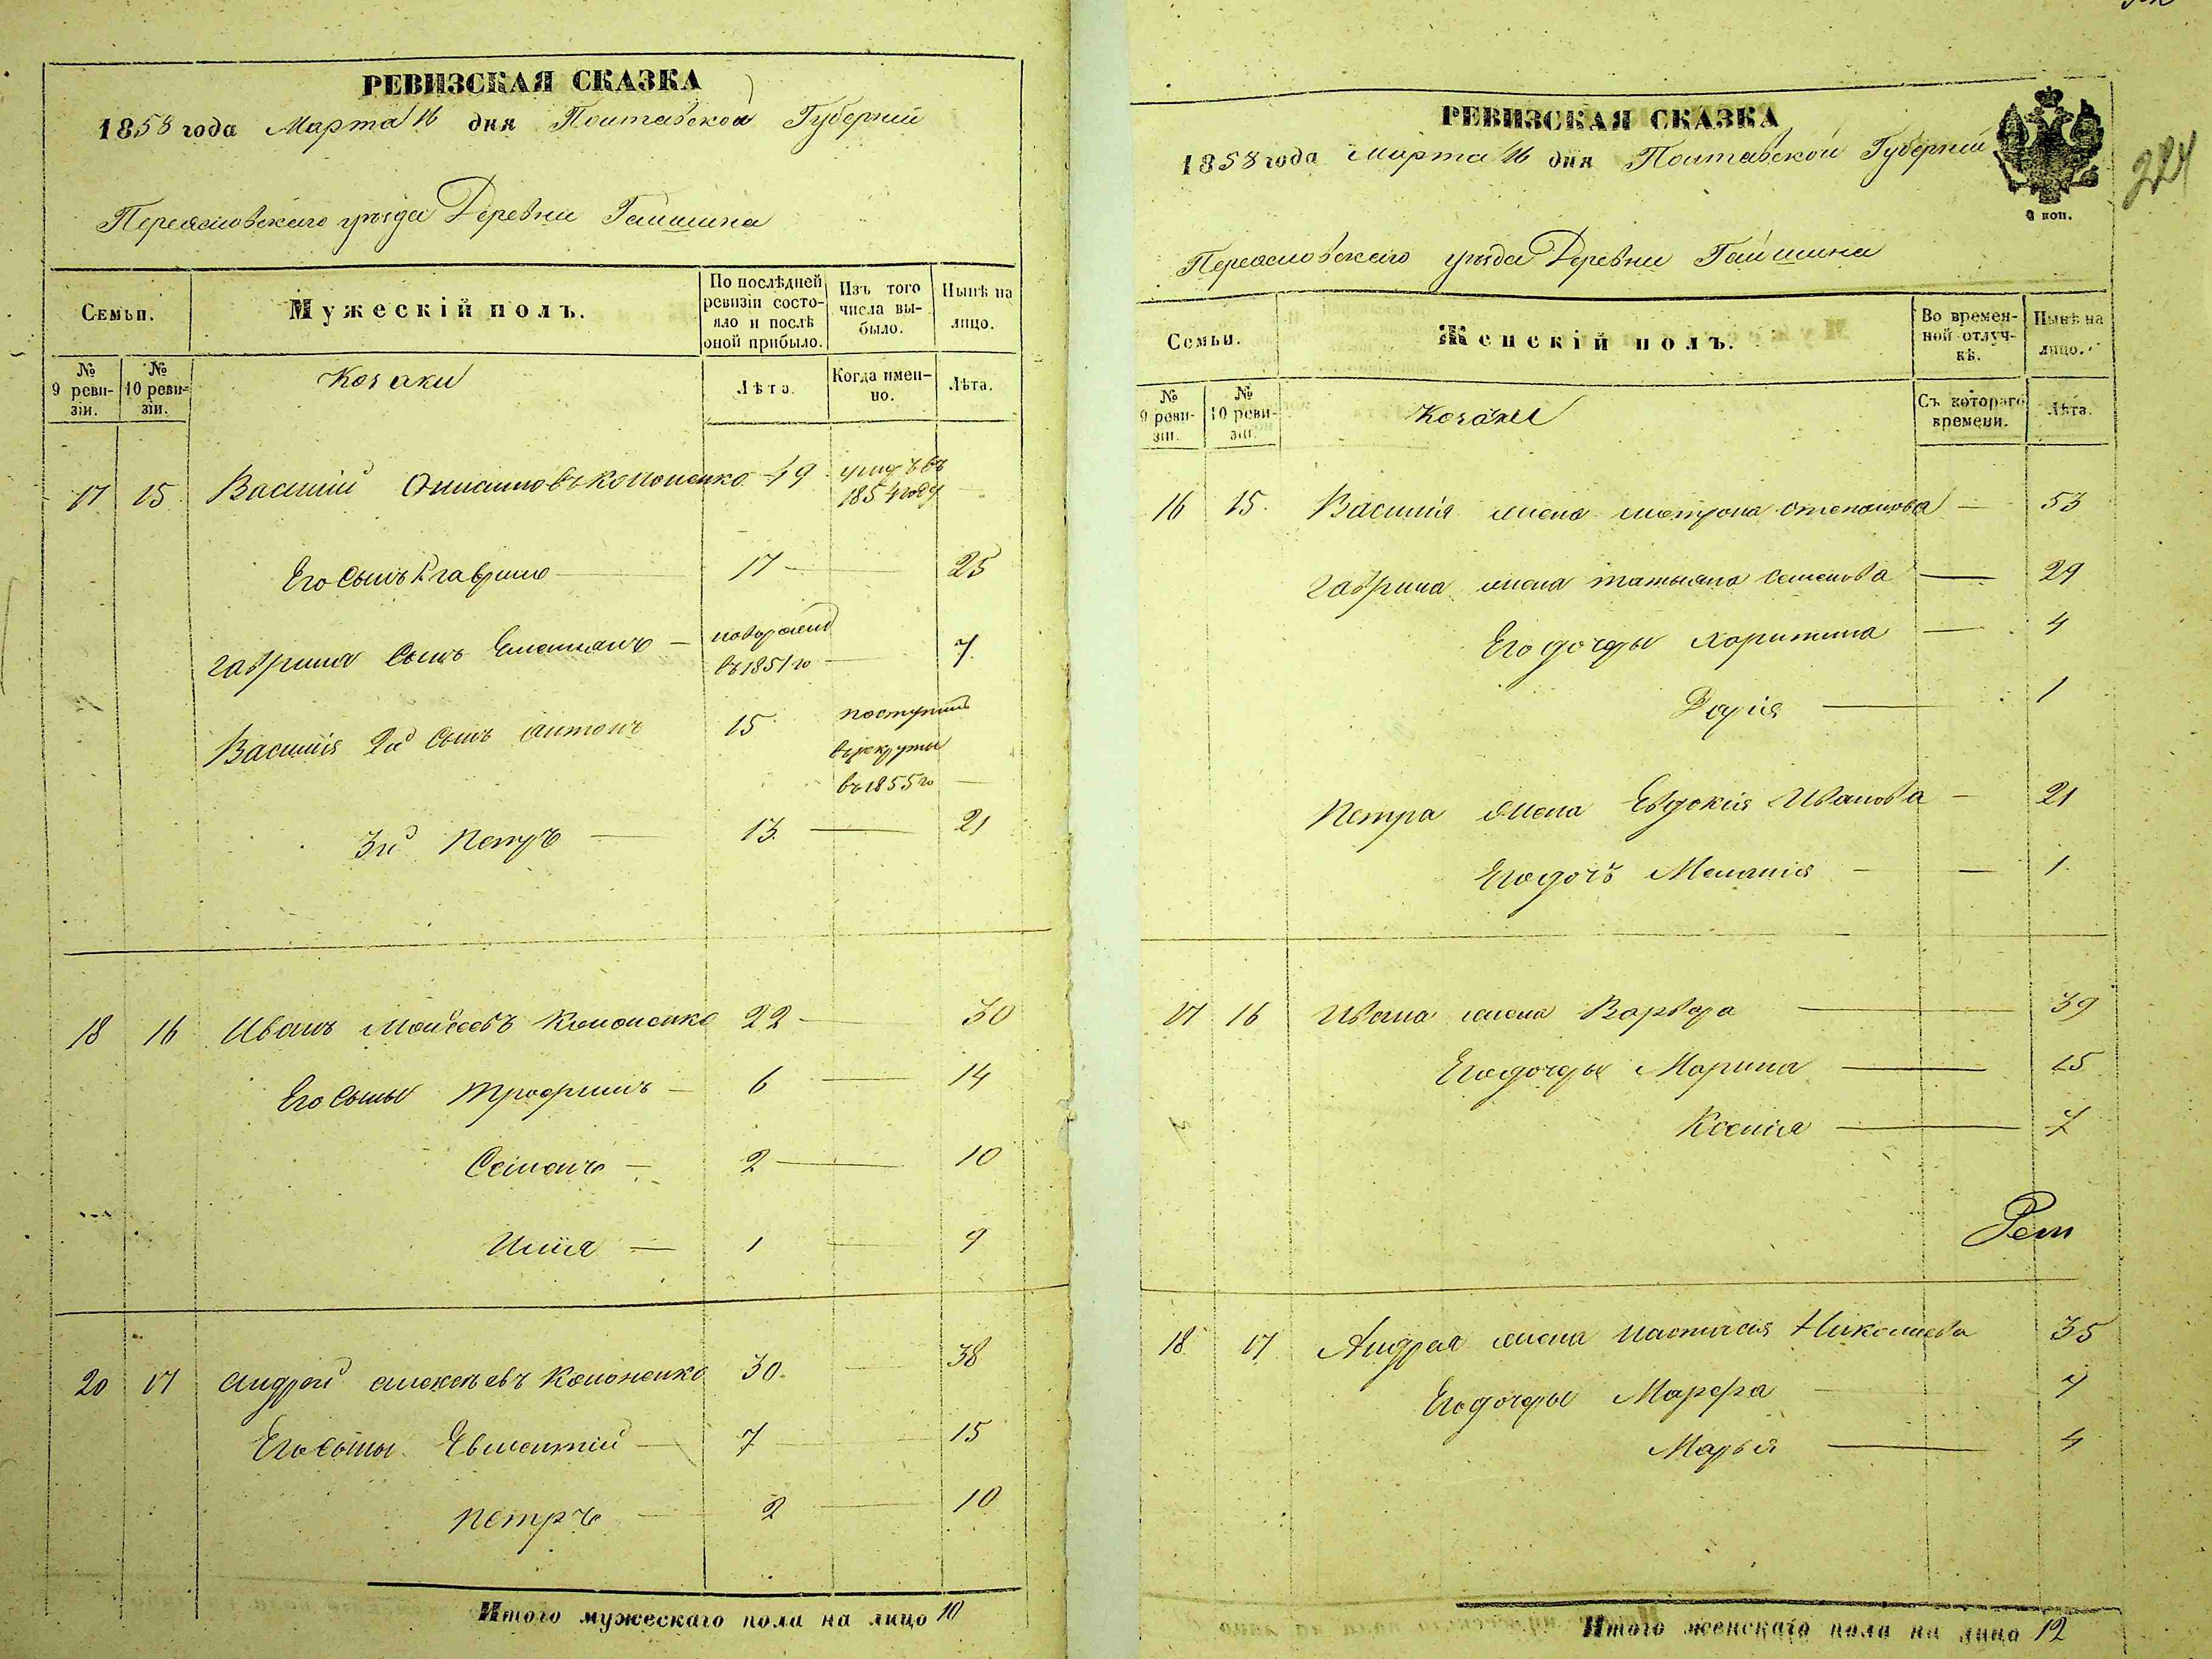 РЕВИЗСКАЯ СКАЗКА
1858 года Марта 16 дня Полтавской Губерніи
Переясловского уѣзда Деревни Гайшина
Семьи.
Мужескій полъ.
По послѣдней ревизіи состояло и послѣ оной прибыло.
Изъ того числа выбыло.
Нынѣ на лицо.
№ 9 ревизіи.
№ 10 ревизіи.
Козаки
Лѣта.
Когда именно.
Лѣта.
17 15 Василий Кононенко 49 въ 1854 году —
Его сынъ 1й Гаврило — 17 — 25
Гаврила сынъ Емельянъ — новорожд въ 1851 го — 7
Василія 2й сынъ Антонъ 15 поступилъ в рекруты въ 1855 го —
3й Петръ — 13 — 21
18 16 Иванъ Мойсеевъ Кононенко 22 — 30
Его сыны Трофимъ — 6 — 14
Семенъ — 2 — 10
Илія — 1 — 9
20 17 Андрей Алексѣевъ Кононенко 30 — 38
Его сыны Евментій — 7 — 15
Петръ — 2 — 10
Итого мужескаго пола на лицо 10
РЕВИЗСКАЯ СКАЗКА
1858 года Марта 16 дня Полтавской Губерніи
224
коп.
Переясловского уѣзда Деревни Гайшина
Семьи.
Женскій полъ.
Во временной отлучкѣ.
Нынѣ на лицо.
№ 9 ревизіи.
№ 10 ревизіи.
Козачки
Съ котораго времени.
Лѣта.
16 15. Василия жена Матрона Степанова — 53
Гаврила жена Татьяна Семенова — 29
Его дочеры Харитина — 4
Дарія — 1
Петра жена Евдокія Иванова — 21
Его дочь Меланія — 1
17 16 Ивана жена Варвара — 39
Его дочеры Марина — 15
Ксенія — 7
18 17 Андрея жена Настасія Николаева 35
Его дочеры Марфа — 7
Марья — 4
Итого женскаго пола на лицо 12